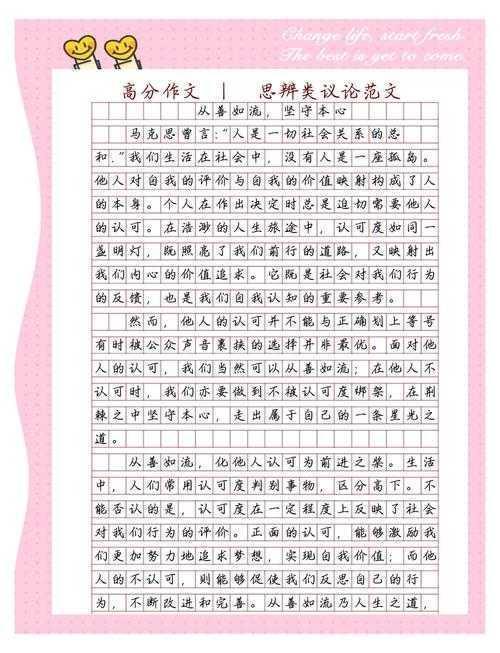 Change life, scart fresh
The best is yet to come.
高分作文 | 思辨类议论范文
从善如流，坚守本心
马克思曾言:“人是一切社会关系的总
和.”我们生活在社会中，没有人是一座孤岛。
他人对自我的评价与自我的价值映射构成了人
的本身。个人在作出决定时总是迫切需要他人
的认可。在浩渺的人生旅途中，认可度如同一
盏明灯，既照亮了我们前行的道路，又映射出
我们内心的价值追求。它既是社会对我们行为
的反馈，也是我们自我认知的重要参考。
然而，他人的认可并不能与正确划上等号
有时被公众声音裹挟的选择并非最优。面对他
人的认可，我们当然可以从善如流；在他人不
认可时，我们亦要做到不被认可度绑架，在荆
棘之中坚守本心，走出属于自己的一条星光之
道。
从善如流，化他人认可为前进之桨。生活
中，人们常用认可度判别事物，区分高下。不
能否认的是，认可度在一定程度上反映了社会
对我们行为的评价。正面的认可，能够激励我
们更加努力地追求梦想，实现自我价值；而他
人的不认可，则能够促使我们反思自己的行
为，不断改进和完善。从善如流乃人生之道，